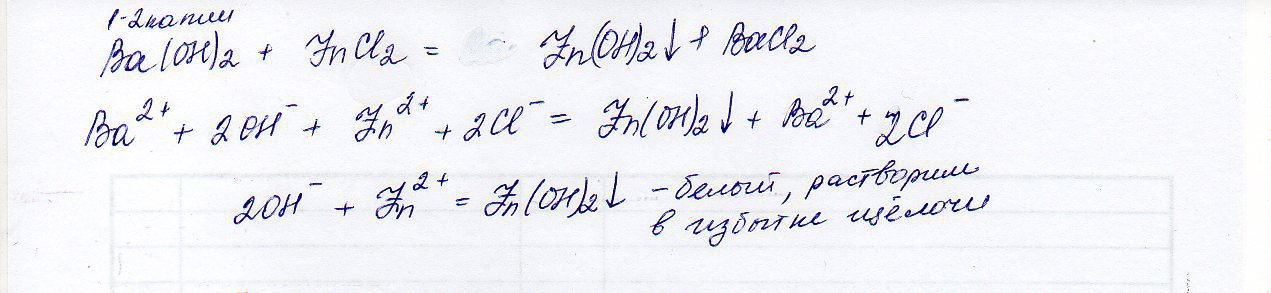 1-2 капли
Ba(OH)₂ + ZnCl₂ = Zn(OH)₂↓ + BaCl₂
Ba²⁺ + 2OH⁻ + Zn²⁺ + 2Cl⁻ = Zn(OH)₂↓ + Ba²⁺ + 2Cl⁻
2OH⁻ + Zn²⁺ = Zn(OH)₂↓ – белый, растворим
в избытке щёлочи